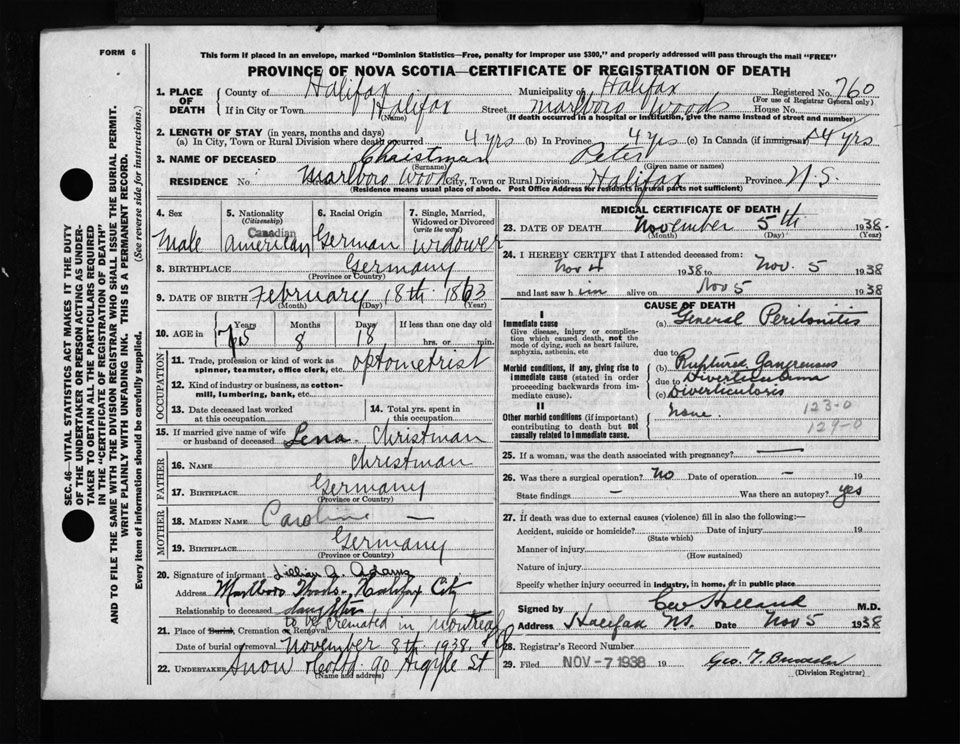 FORM 6
This form if placed in an envelope, marked "Dominion Statistics—Free, penalty for improper use $300," and properly addressed will pass through the mail "FREE"
PROVINCE OF NOVA SCOTIA—CERTIFICATE OF REGISTRATION OF DEATH
1. PLACE OF DEATH County of Halifax Municipality of Halifax Registered No. 760
(For use of Registrar General only)
If in City or Town Halifax Street Marlboro Woods House No.
(Name) (If death occurred in a hospital or institution, give the name instead of street and number)
2. LENGTH OF STAY (in years, months and days)
(a) In City, Town or Rural Division where death occurred 4 yrs (b) In Province 4 yrs (c) In Canada (if immigrant) 4 yrs
3. NAME OF DECEASED Christman Peter
(Surname) (Given name or names)
RESIDENCE No Marlboro Woods City, Town or Rural Division Halifax Province N.S.
(Residence means usual place of abode. Post Office Address for residents in rural parts not sufficient)
4. Sex Male
5. Nationality (Citizenship) Canadian American
6. Racial Origin German
7. Single, Married, Widowed or Divorced (write the word) Widower
8. BIRTHPLACE Germany
(Province or Country)
9. DATE OF BIRTH February 18th 1863
(Month) (Day) (Year)
10. AGE in Years 75 Months 8 Days 18 If less than one day old hrs. or min.
OCCUPATION
11. Trade, profession or kind of work as spinner, teamster, office clerk, etc. optometrist
12. Kind of industry or business, as cotton-mill, lumbering, bank, etc.
13. Date deceased last worked at this occupation
14. Total yrs. spent in this occupation
15. If married give name of wife or husband of deceased Lena Christman
FATHER
16. NAME Christman
17. BIRTHPLACE Germany
(Province or Country)
MOTHER
18. MAIDEN NAME Caroline —
19. BIRTHPLACE Germany
(Province or Country)
20. Signature of informant Lillian A. Adams
Address Marlboro Woods. Halifax City
Relationship to deceased daughter
to be cremated in Montreal
21. Place of Burial, Cremation or Removal
Date of burial or removal November 8th 1938.
22. UNDERTAKER Snow & Co Ltd. 90 Argyle St
(Name and address)
MEDICAL CERTIFICATE OF DEATH
23. DATE OF DEATH November 5th 1938.
(Month) (Day) (Year)
24. I HEREBY CERTIFY that I attended deceased from:
Nov 4 1938 to Nov. 5 1938
and last saw h im alive on Nov 5 1938
CAUSE OF DEATH
I
Immediate cause
Give disease, injury or complication which caused death, not the mode of dying, such as heart failure, asphyxia, asthenia, etc
(a) General Peritonitis
due to
Morbid conditions, if any, giving rise to immediate cause (stated in order proceeding backwards from immediate cause).
(b) Ruptured Gangrenous
due to Diverticulum
(c) Diverticulosis
II
Other morbid conditions (if important) contributing to death but not causally related to immediate cause.
None.
123-0
129-0
25. If a woman, was the death associated with pregnancy? —
26. Was there a surgical operation? No Date of operation — 19
State findings — Was there an autopsy? yes
27. If death was due to external causes (violence) fill in also the following:—
Accident, suicide or homicide? Date of injury 19
(State which)
Manner of injury
(How sustained)
Nature of injury
Specify whether injury occurred in industry, in home, or in public place
Signed by Geo Holland M.D.
Address Halifax NS. Date Nov 5 1938
28. Registrar's Record Number
29. Filed NOV -7 1938 19 Geo. T.
(Division Registrar)
SEC. 46—VITAL STATISTICS ACT MAKES IT THE DUTY OF THE UNDERTAKER OR PERSON ACTING AS UNDERTAKER TO OBTAIN ALL THE PARTICULARS REQUIRED IN THE "CERTIFICATE OF REGISTRATION OF DEATH" AND TO FILE THE SAME WITH THE DIVISION REGISTRAR WHO SHALL ISSUE THE BURIAL PERMIT.
WRITE PLAINLY WITH UNFADING INK. THIS IS A PERMANENT RECORD.
Every item of information should be carefully supplied. (See reverse side for instructions.)